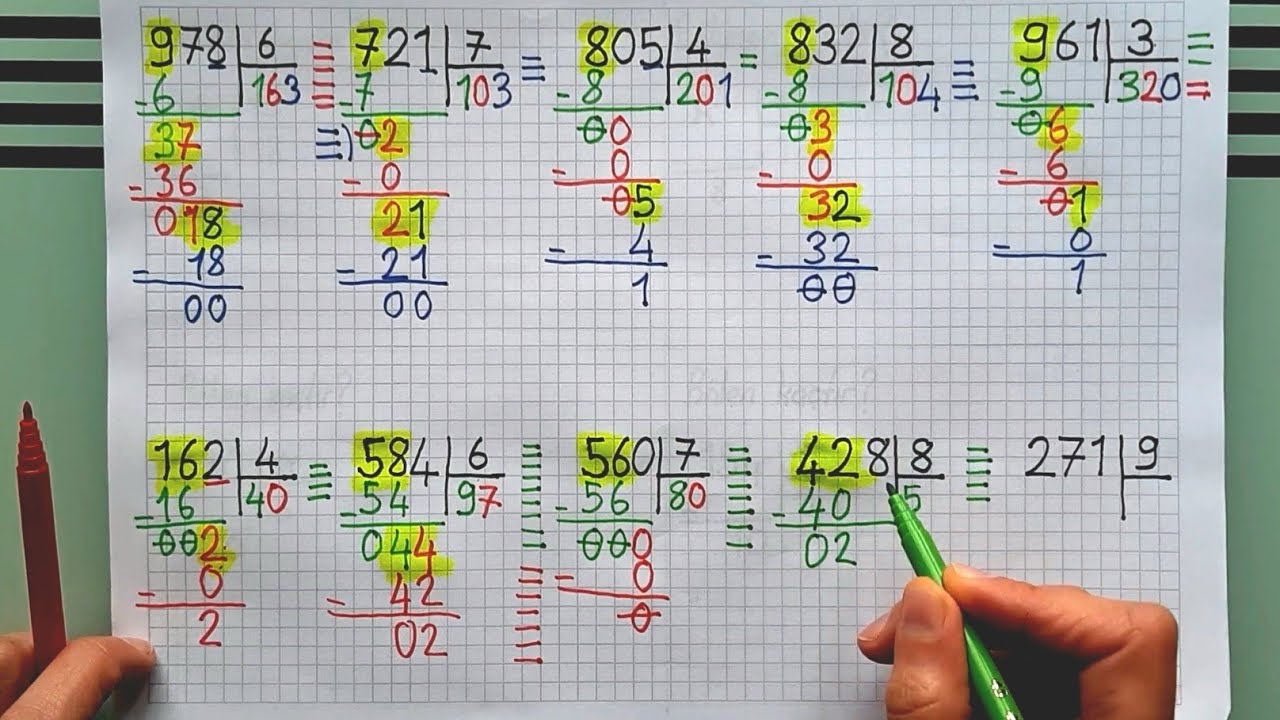 978 6 721 7 805 4 832 8 961 3
-6 163 -7 103 -8 201 = -8 104 -9 320 =
37 02 00 03 06
-36 -0 -0 -0 -6
018 21 05 32 01
-18 -21 -4 -32 -0
00 00 1 00 1
162 4 584 6 560 7 428 8 271 9
-16 40 -54 97 -56 80 -40 5
002 044 000 02
-0 -42 -0
2 02 0